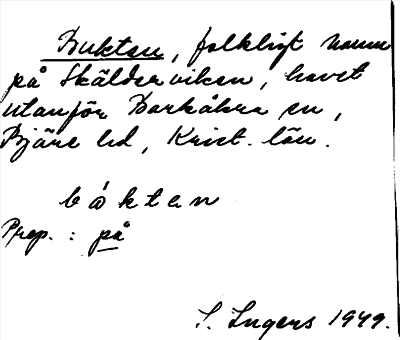 Bukten, folkligt namn
på Skälderviken, havet
utanför Barkåkra sn,
Bjäre hd, Krist. län.
båktan
Prep. : på
I. Ingers 1949.